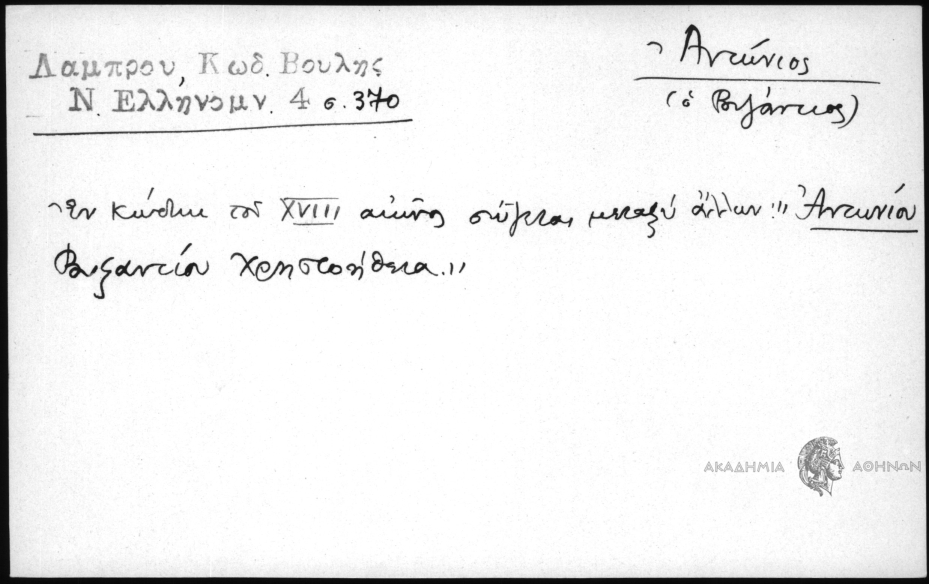 Λαμπρου, Κωδ. Βουλης
Ν. Ελληνομν. 4 σ. 370
Ἀντώνιος
(ὁ Βυζάντιος)
Ἐν κώδικι τοῦ XVIII αἰῶνος σῴζεται μεταξὺ ἄλλων "Ἀντωνίου
Βυζαντίου Χρηστοήθεια"
ΑΚΑΔΗΜΙΑ ΑΘΗΝΩΝ